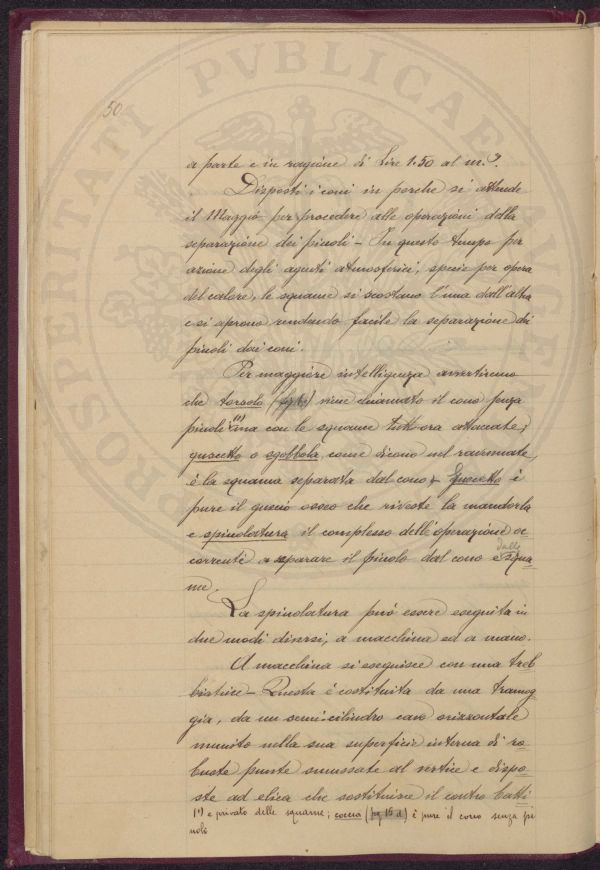 50
PROSPERITATI PVBLICAE AVGENDAE
a parte e in ragione di Lire 1.50 al m.³.
Disposti i coni in porche si attende
il Maggio per procedere alle operazioni della
separazione dei pinoli – In questo tempo per
azione degli agenti atmosferici, specie per opera
del calore, le squame si scostano l'una dall'altra
e si aprono rendendo facile la separazione di
pinoli dai coni.
Per maggiore intelligenza avvertiremo
che torsolo viene chiamato il cono senza
pinoli (1) ma con le squame tutt'ora attaccate;
guscetto o sgobbola, come dicono nel ravennate,
è la squama separata dal cono. Guscetto è
pure il guscio osseo che riveste la mandorla
e spinolatura il complesso dell'operazione oc-
correnti a separare il pinolo dal cono e dalle squa-
me.
La spinolatura può essere eseguita in
due modi diversi, a macchina ed a mano.
A macchina si eseguisce con una treb-
biatrice – Questa è costituita da una tramog-
gia, da un semi-cilindro cavo orizzontale
munito nella sua superficie interna di ro-
buste punte smussate al vertice e dispo-
ste ad elica che sostituisce il contro batti
(1) e privato delle squame; coccia (fig 15 d) è pure il cono senza pi
nolo